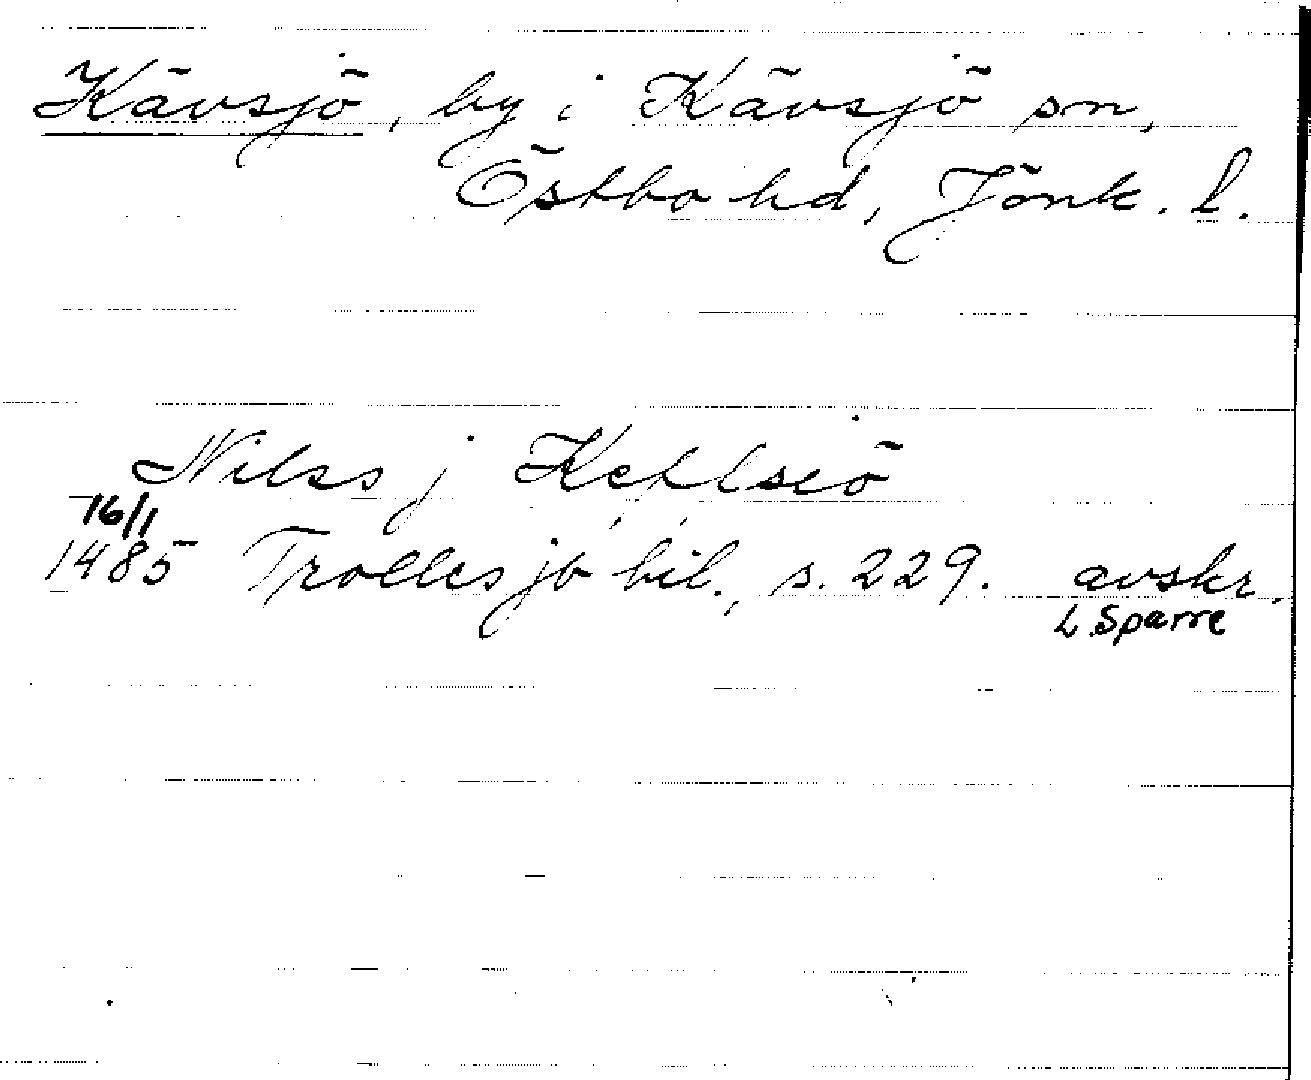 Kävsjö, by i Kävsjö sn,
Östbo hd, Jönk. l.
Nilss j Keflsiö
16/1
1485 Trolles jb bil., s. 229. avskr.
L Sparre